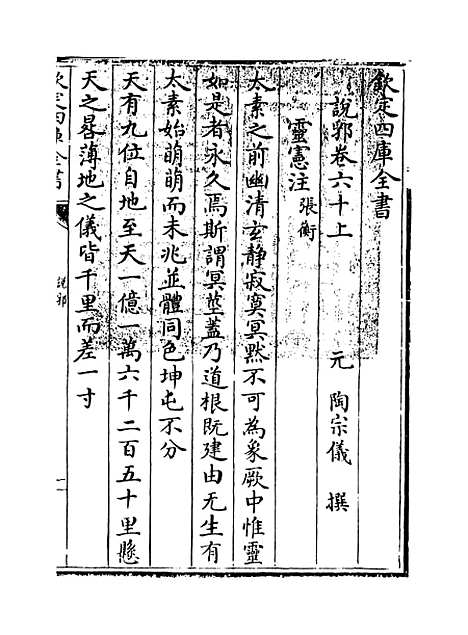 欽定四庫全書
說郛卷六十上　元　陶宗儀　撰
靈憲注張衡
太素之前幽清玄靜寂寞冥黙不可為象厥中惟靈
如是者永久焉斯謂冥莖蓋乃道根既建由无生有
太素始萌萌而未兆並體同色坤屯不分
天有九位自地至天一億一萬六千二百五十里懸
天之晷薄地之儀皆千里而差一寸
欽定四庫全書
說郛
一